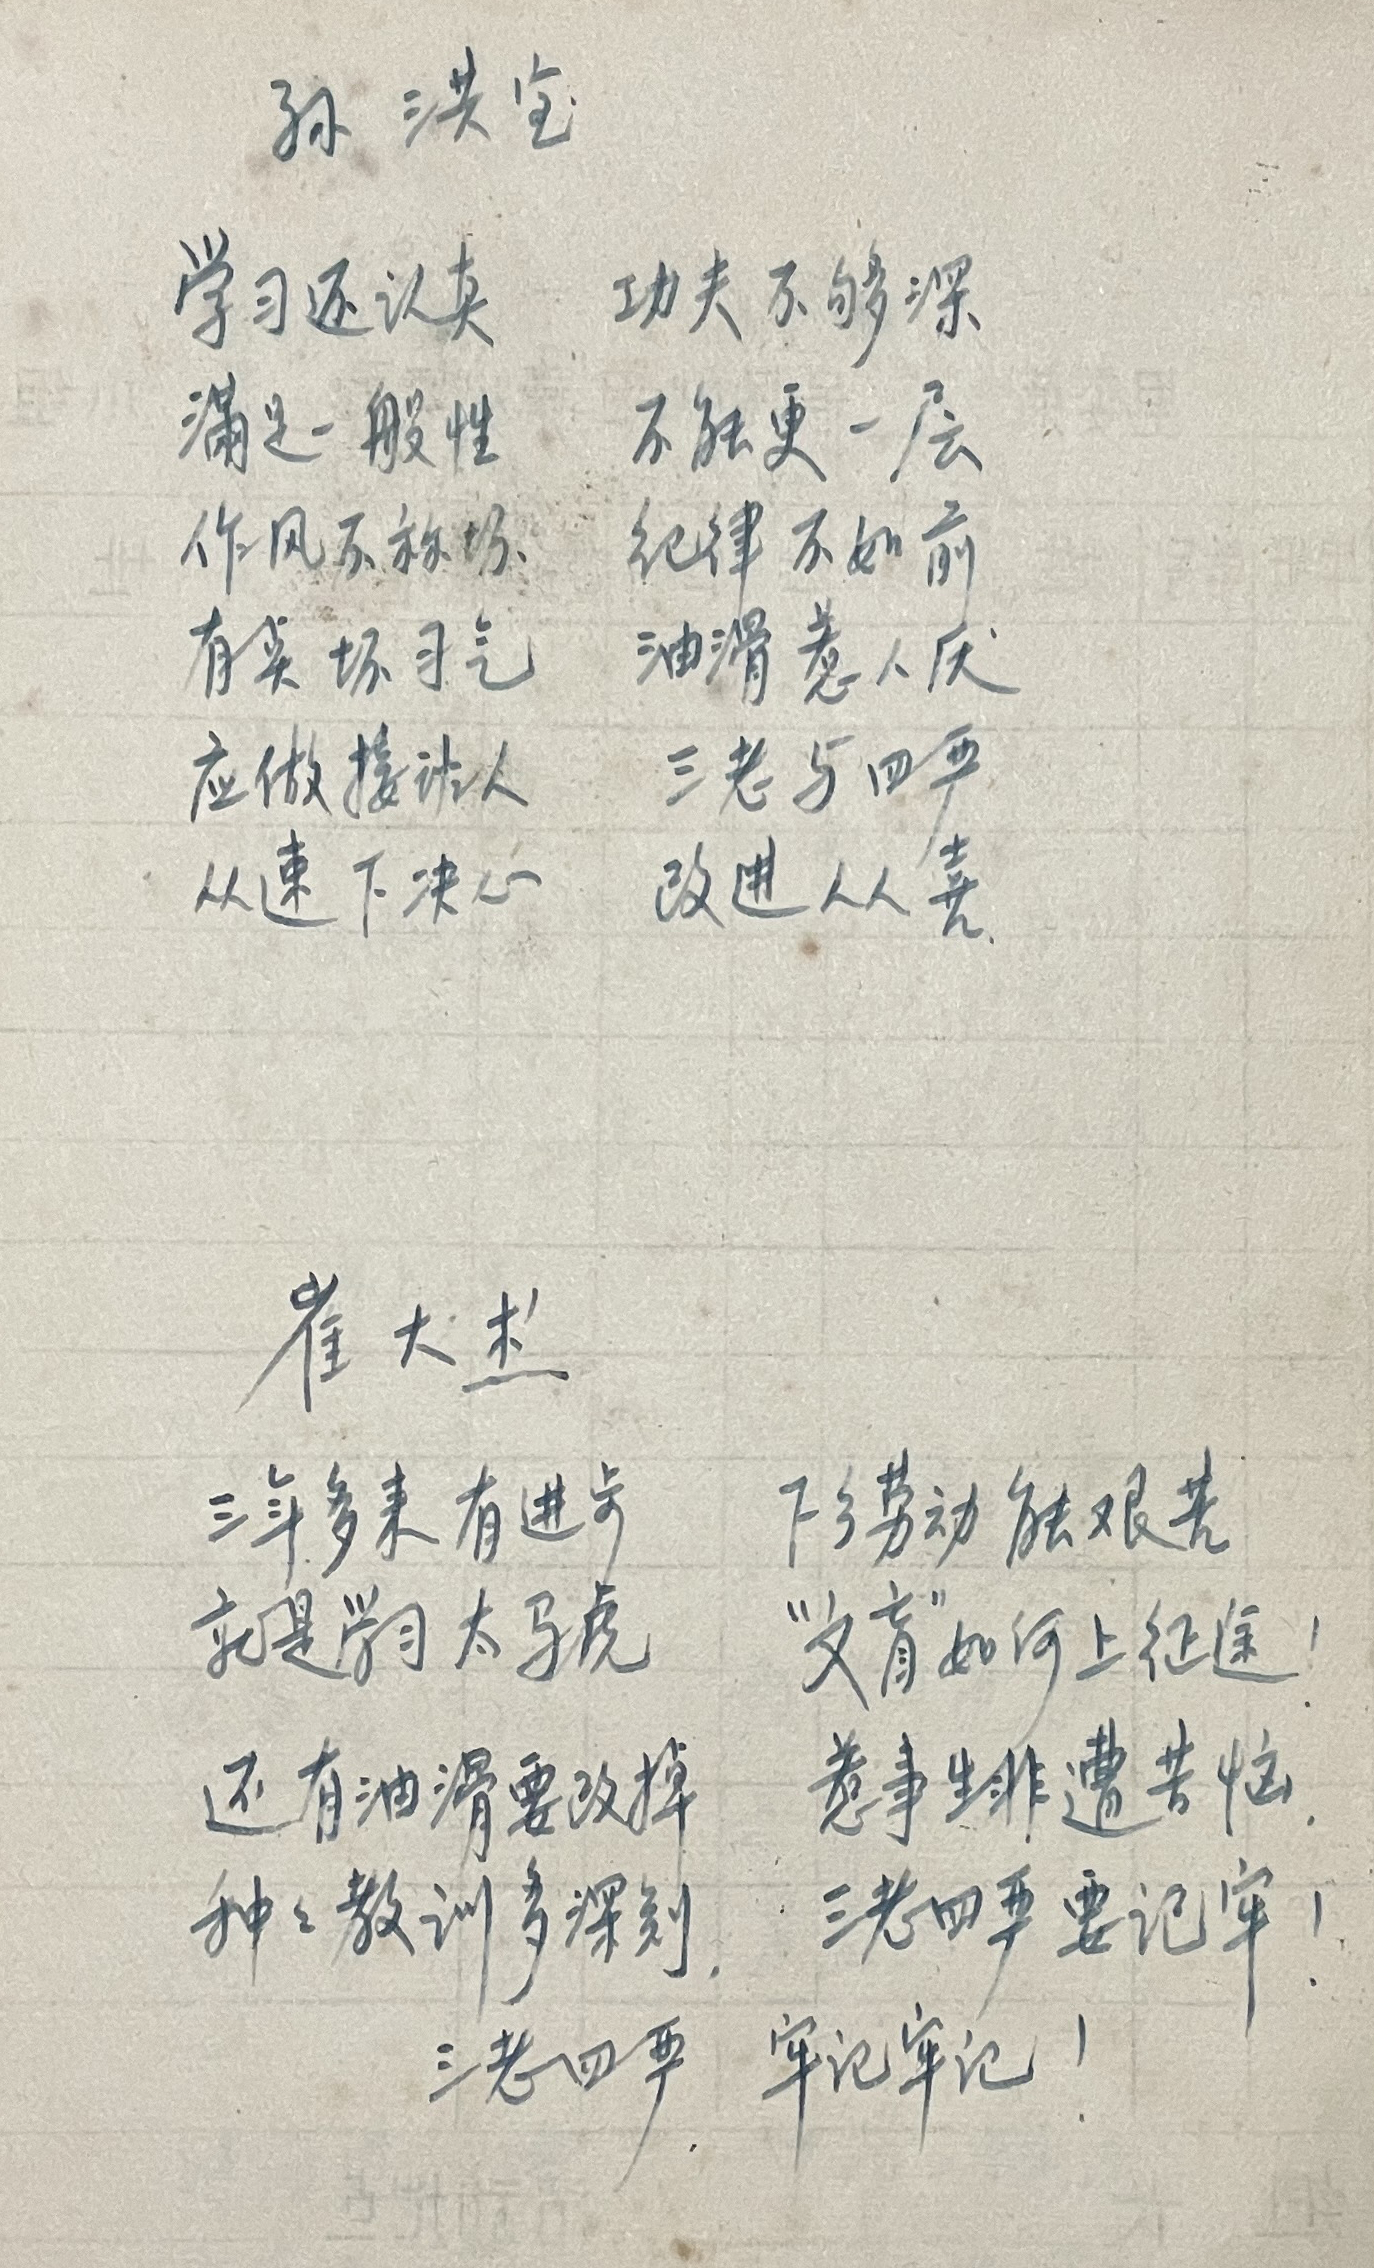 孙洪宝
学习还认真 功夫不够深
满足一般性 不能更一层
作风不称坏 纪律不如前
有类坏习气 油滑惹人厌
应做接班人 三老与四严
从速下决心 改进人人喜.
崔大杰
三年多来有进步 下乡劳动能艰苦
就是学习太马虎 “文盲”如何上征途!
还有油滑要改掉 惹事生非遭苦恼.
种々教训多深刻. 三老四严要记牢!
三老四严. 牢记牢记!